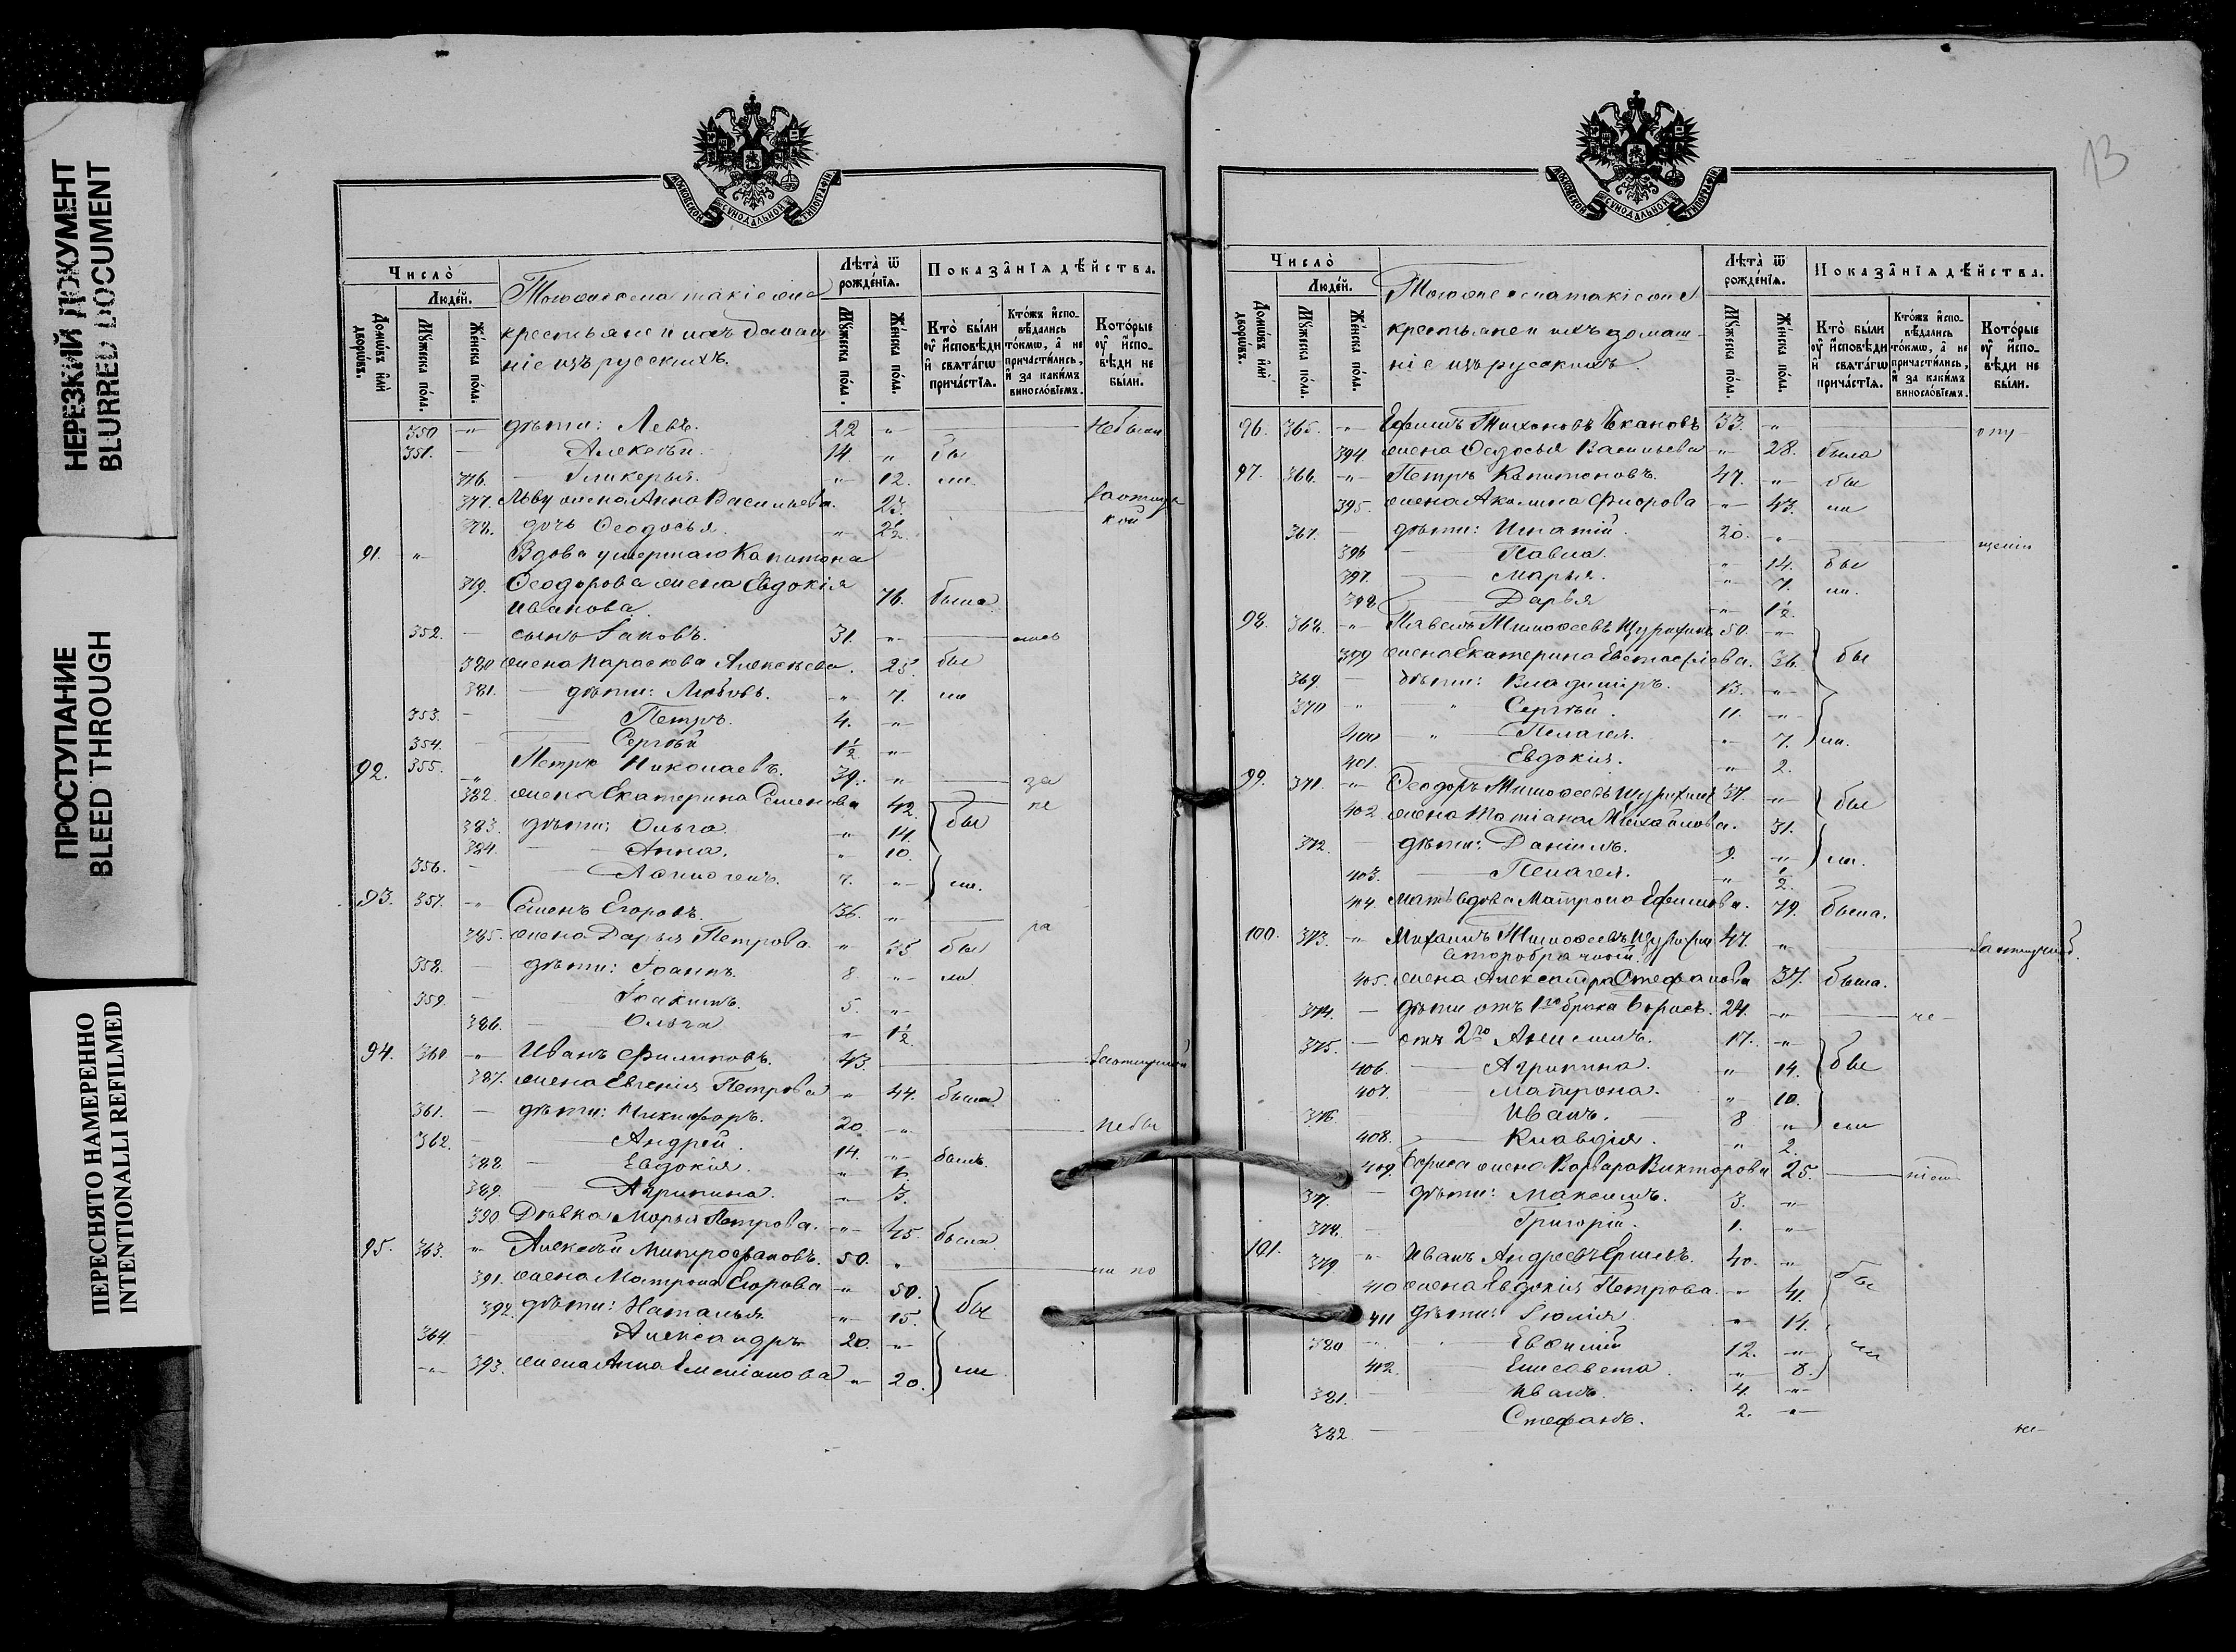 НЕРЕЗКИЙ ДОКУМЕНТ
BLURRED DOCUMENT
ПРОСТУПАНИЕ
BLEED THROUGH
ПЕРЕСНЯТО НАМЕРЕННО
INTENTIONALLI REFILMED
МОСКОВСКОЙ СѴНОДАЛЬНОЙ ТИПОГРАФІИ
Число̀
Люде́й.
Домѡ́въ и҆лѝ дворѡ́въ.
Мꙋ́жеска по́ла.
Же́нска по́ла.
Тогоже села такіе же
крестьяне и ихъ домаш
ніе изъ русскихъ.
Лѣта̀ ѿ рожде́нїѧ.
Мꙋ́жеска по́ла.
Же́нска по́ла.
Показа̂нїѧ дѣ́йства.
Кто̀ бы́ли оу҆ и҆сповѣди и҆ свѧта́гѡ прича́стїѧ.
Кто́жъ и҆спо-вѣдались то́кмѡ, а҆ не причасти́лись, и҆ за каки́мъ винословїемъ.
Кото́рые оу҆ и҆спо-вѣди не бы́ли.
350 " дѣти: Левъ. 22 " Не были
351. Алексѣй. 14. " бы
376. Гликерья. " 12. ли.
377. Льву жена Анна Васильева. 23.
378. дочь Ѳеодосья. " 2½
91. " Вдова умершаго Капитона
379. Ѳеодорова жена Евдокія
Иванова. 76. была.
352. сынъ Іаковъ. 31. "
380 жена Параскева Алексѣева. 25. бы
381. дѣти: Любовь. " 7. ли
353. Петръ. 4. "
354. Сергѣй 1½ "
92. 355. " Петръ Николаевъ. 39. " за
382. жена Екатерина Семенова 42. не
383. дѣти: Ольга. " 14. бы
384. Анна. " 10.
356. 7. " ли.
93. 357. " Семенъ Егоровъ. 36. " ра
385. жена Дарья Петрова. " 35 бы
358. дѣти: Іоаннъ. 8 " ли
359. Іоакимъ. 5. "
386. Ольга " 1½
94. 360 " Иванъ Филиповъ. 43.
387. жена Евгенія Петрова " 44. была.
361. дѣти: Никифоръ. 20. " не бы
362. Андрей. 14. " былъ.
388. Евдокія. "
389. Агрипина. " 3.
390 Дѣвка Марья Петрова. " 45. была.
95. 363. " Алексѣй Митрофановъ. 50. " ли по
391. жена Матрона Егорова " 50.
392. дѣти: Наталья. " 15. бы
364 Александръ 20. "
" 393. жена Анна Емеліанова " 20. ли
МОСКОВСКОЙ СѴНОДАЛЬНОЙ ТИПОГРАФІИ
13
Число̀
Люде́й.
Домѡ́въ и҆лѝ дворѡ́въ.
Мꙋ́жеска по́ла.
Же́нска по́ла.
Тогоже села такіе же
крестьяне и ихъ домаш-
ніе изъ русскихъ.
Лѣта̀ ѿ рожде́нїѧ.
Мꙋ́жеска по́ла.
Же́нска по́ла.
Показа̂нїѧ дѣ́йства.
Кто̀ бы́ли оу҆ и҆сповѣди и҆ свѧта́гѡ прича́стїѧ.
Кто́жъ и҆спо-вѣдались то́кмѡ, а҆ не причасти́лись, и҆ за каки́мъ винословїемъ.
Кото́рые оу҆ и҆спо-вѣди не бы́ли.
96. 365. " Ефимъ Тихоновъ 33. " опу
394. жена Ѳеодосья Васильева " 28. была
97. 366. " Петръ Капитоновъ. 47. " бы
395. жена Акилина Фирова " 43. ли
367. дѣти: Игнатій. 20. " щенію
396 Павла. " 14. бы
397. Марья. " 7. ли.
398. Дарья " 1½
98. 368. " Павелъ Тимоѳеевъ 50. "
399 жена Екатерина Евстафіева. 36. бы
369. дѣти: Владиміръ. 13. "
370 " " Сергѣй. 11. "
400 " Пелагея. " 7. ли.
401. Евдокія. " 2.
99. 371. " Ѳеодоръ Тимоѳеевъ 37. "
402. жена Татіана Михайлова. 31. бы
372. дѣти: Даніилъ. 9. " ли.
403. Пелагея. " ½.
404. мать вдова Матрона Ефимова. 79. была.
100. 373. " Михаилъ Тимоѳеевъ 47. "
второбрачный.
405. жена Александра Стефанова 37. была.
374. дѣти отъ 1го брака Борисъ. 24. " не-
375. отъ 2го Анисимъ. 17. "
406. Агрипина. " 14. бы
407. Матрона. " 10.
376. Иванъ. 8 " ли
408. Клавдія. " 2.
409. Бориса жена Варвара Викторова 25.
377. дѣти: Максимъ. 3. "
378. Григорій. 1. "
101. 379. " Иванъ Андреевъ Ершевъ. 40. "
410 жена Евдокія Петрова. " 41. бы
411 дѣти: Юлія " 14.
380 " Евѳимій 12. " ли
412. Елисавета. " 8.
381. Иванъ. 4. "
382. Стефанъ. 2. "
не-